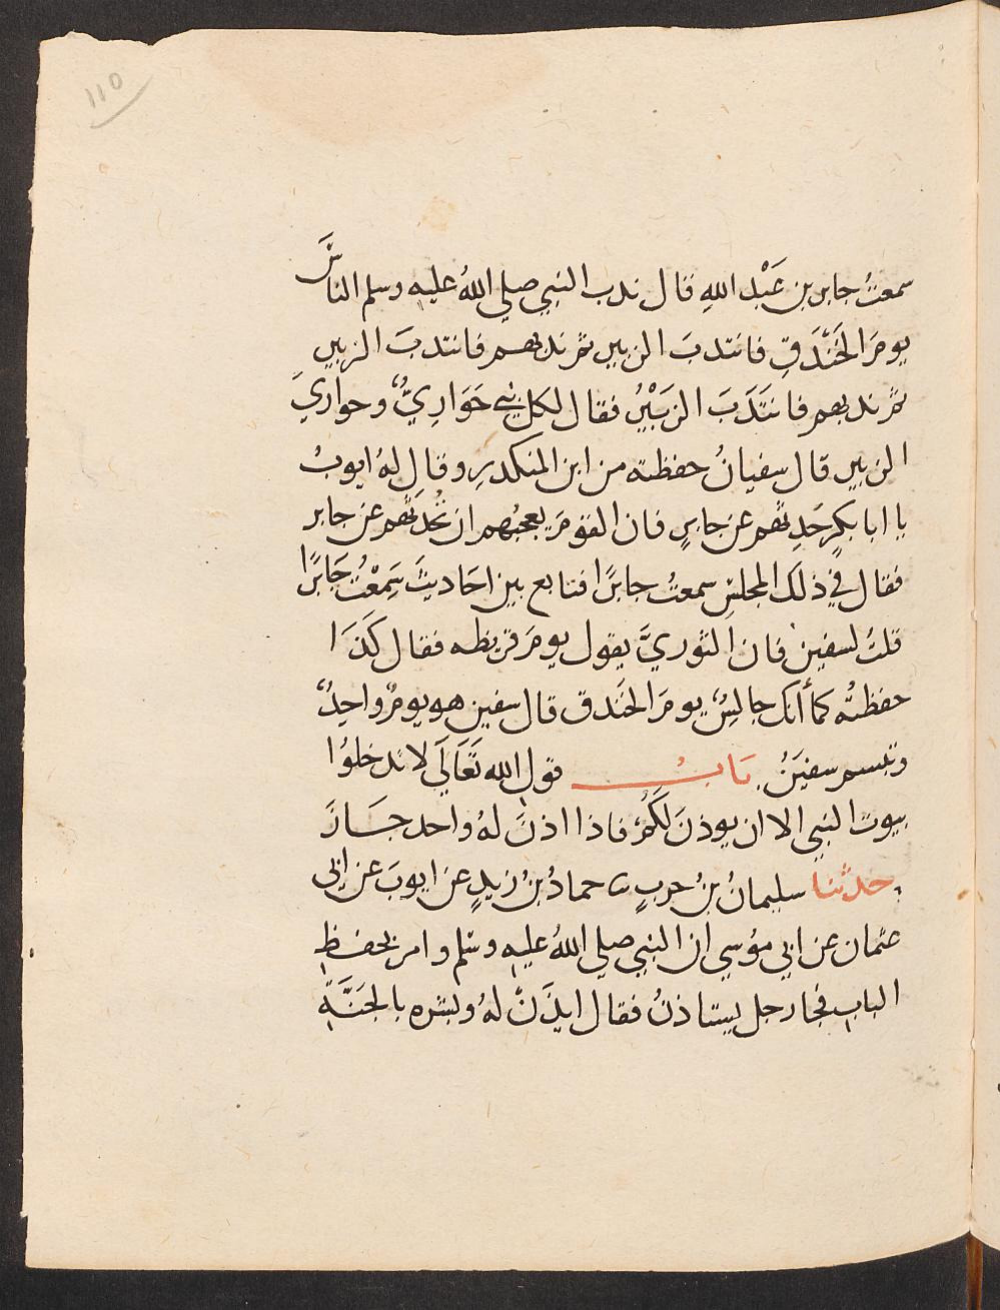 ١١٥
سمعتُ جابر بن عَبْد اللهِ قال ندب النبي صلي اللهُ عليه وسلم الناسَ
يومَ الخَنْدَقِ فانتدبَ الزبير ثم ندبهم فانتدبَ الزبير
ثم ندبهم فانتَدَبَ الزبَيْرُ فقال لكل نبي حَوَارِيٌّ وحواريَ
الزبير قال سفيانُ حفظته من ابن المنكدرِ وقال لهُ ايوبُ
يا ابا بكرٍ حَدِثهم عن جابرٍ فان القومَ يعجبُهم ان تُحَدثهم عن جابر
فقال في ذلك المجلس سمعتُ جابرًا فتابع بين احاديثَ سَمِعْتُ جَابرًا
قلتُ لسفين فان الثوريَّ يقول يومَ قريظه فقال كذَا
حفظتُه كما أنك جالسٌ يومَ الخَندق قال سفين هو يومٌ واحِدٌ
وتبسم سفيَنُ بَابُ قول الله تَعَالَي لا تدخلوُا
بيوت النبي الا ان يوذنَ لكُم فاذا اذنَ لهُ واحد جَازَ
حدثنا سليمانُ بنُ حربٍ ثنا حمادُ بنُ زيدٍ عن ايوبَ عن ابي
عثمان عن ابي موُسي ان النبي صلي اللهُ عليه وسَلم وامر بحفظِ
الباب فجا رجل يستاذنُ فقال ايذَنْ لهُ وبشره بالجَنَّةِ